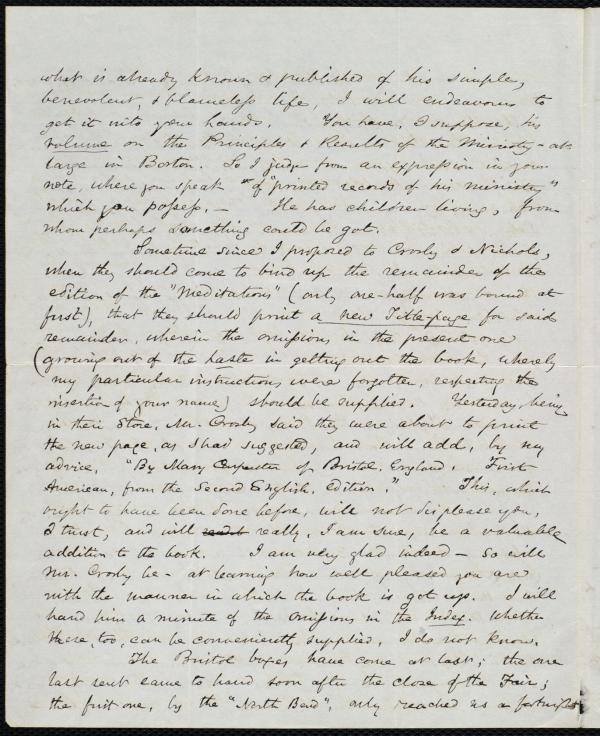 what is already known & published of his simple,
benevolent, & blameless life, I will endeavour to
get it into your hands. You have, I suppose, his
volume on the Principles & Results of the Ministry-at-
large in Boston. So I judge from an expression in your
note, where you speak "of "printed records of his ministry"
which you possess. — He has children living, from
whom perhaps something could be got.
Sometime since I proposed to Crosby & Nichols,
when they should come to bind up the remainder of the
edition of the "Meditations" (only one-half was bound at
first), that they should print a new Title-page for said
remainder, wherein the omissions in the present one
(growing out of the haste in getting out the book, whereby
my particular instructions were forgotten, respecting the
insertion of your name) should be supplied. Yesterday, being
in their Store, Mr. Crosby said they were about to print
the new page, as I had suggested, and will add, by my
advice, "By Mary Carpenter of Bristol, England. First
American, from the Second English, Edition." This, which
ought to have been done before, will not displease you,
I trust, and will really, I am sure, be a valuable
addition to the book. I am very glad indeed — so will
Mr. Crosby be — at learning how well pleased you are
with the manner in which the book is got up. I will
hand him a minute of the omissions in the Index. Whether
these, too, can be conveniently supplied, I do not know.
The Bristol boxes have come at last; the one
last sent came to hand soon after the close of the Fair;
the first one, by the "North Bend", only reached us a fortnight